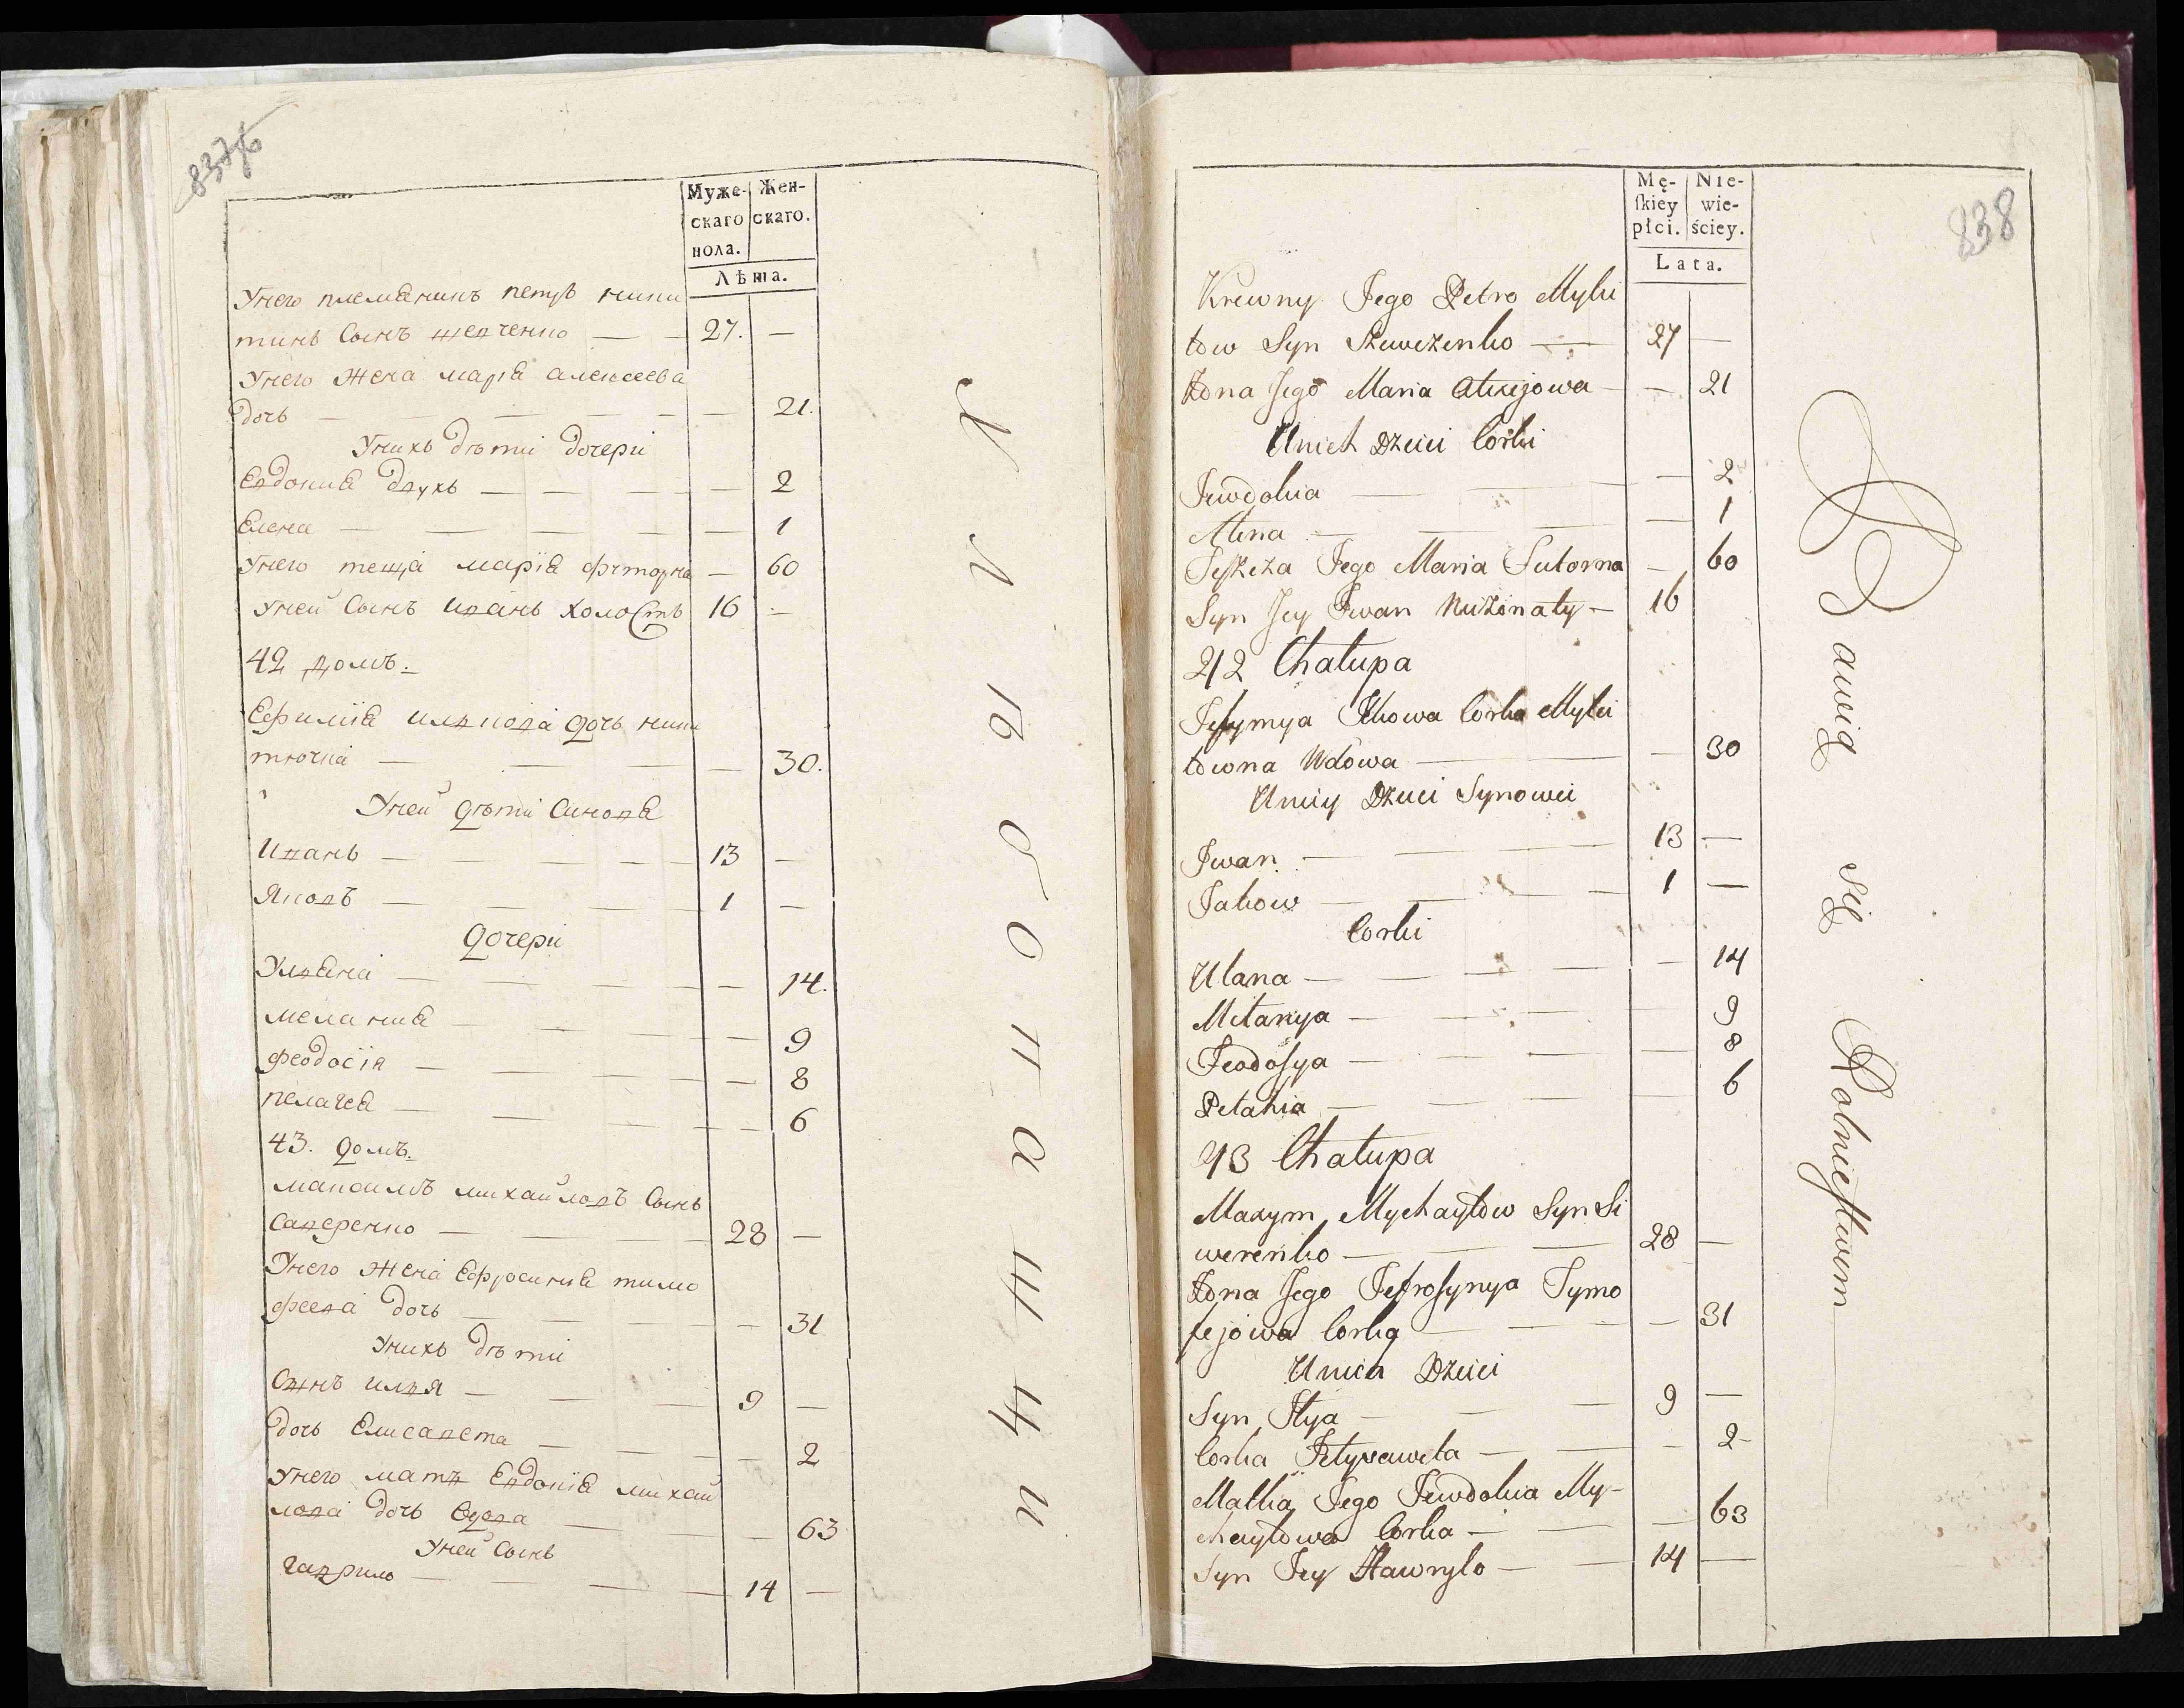 837об
Муже- Жен-
скаго скаго.
пола.
Лѣта.
Унего племѣникъ петръ ники
тинъ Сынъ шевченко — 27. —
Унего жена марія алексеева
дочь — — 21.
Унихъ дѣти дочери
Евдокия — — 2
Елена — — 1
Унего теща марія — 60
Уней Сынъ Иванъ холостъ 16 —
42 домъ.
Ефимія дочь ники
— — 30.
Уней дѣти Синовя
Иванъ — 13 —
Яковъ — 1 —
Дочери
Уляна — — 14.
мелания — — 9
феодосія — — 8
пелагея — — 6
43. домъ.
максимъ михайловъ Сынъ
Саверенко — 28 —
Унего жена Ефросиния тимо
феева дочь — — 31
Унихъ дѣти
Сынъ илья — 9 —
дочь Елисавета — — 2
Унего мать Евдокія михай
лова дочь вдова — — 63
Уней Сынъ
гаврило — 14 —
838
Mę- Nie-
ſkiey wie-
płci. ściey.
Lata.
Krewny Jego Petro Myki
tow Syn Szewczenko — 27 —
Żona Jego Maria Alexejowa — — 21
Unich Dzieci Corki
Jewdokia — — 2
Alena — — 1
Jego Maria — 60
Syn Jey Iwan Nieżonaty — 16
42 Chałupa
Jefymya Ilkowa Corka Myki
towna Wdowa — — 30
Uniey Dzieci Synowei
Iwan — 13 —
Jakow — 1 —
Corki
Ulana — — 14
Mełanya — — 9
Feodosya — — 8
Pełahia — — 6
43 Chałupa
Maxym Mychayłow Syn Si
werenko — 28 —
Żona Jego Jefrosynya Tymo
fejowa Corka — — 31
Unich Dzieci
Syn Ilya — 9 —
Corka Jełysaweta — — 2
Matka Jego Jewdokia My-
chayłowa Corka — — 63
Syn Jey Hawryło — 14 —
Bawią się Rolnictwem